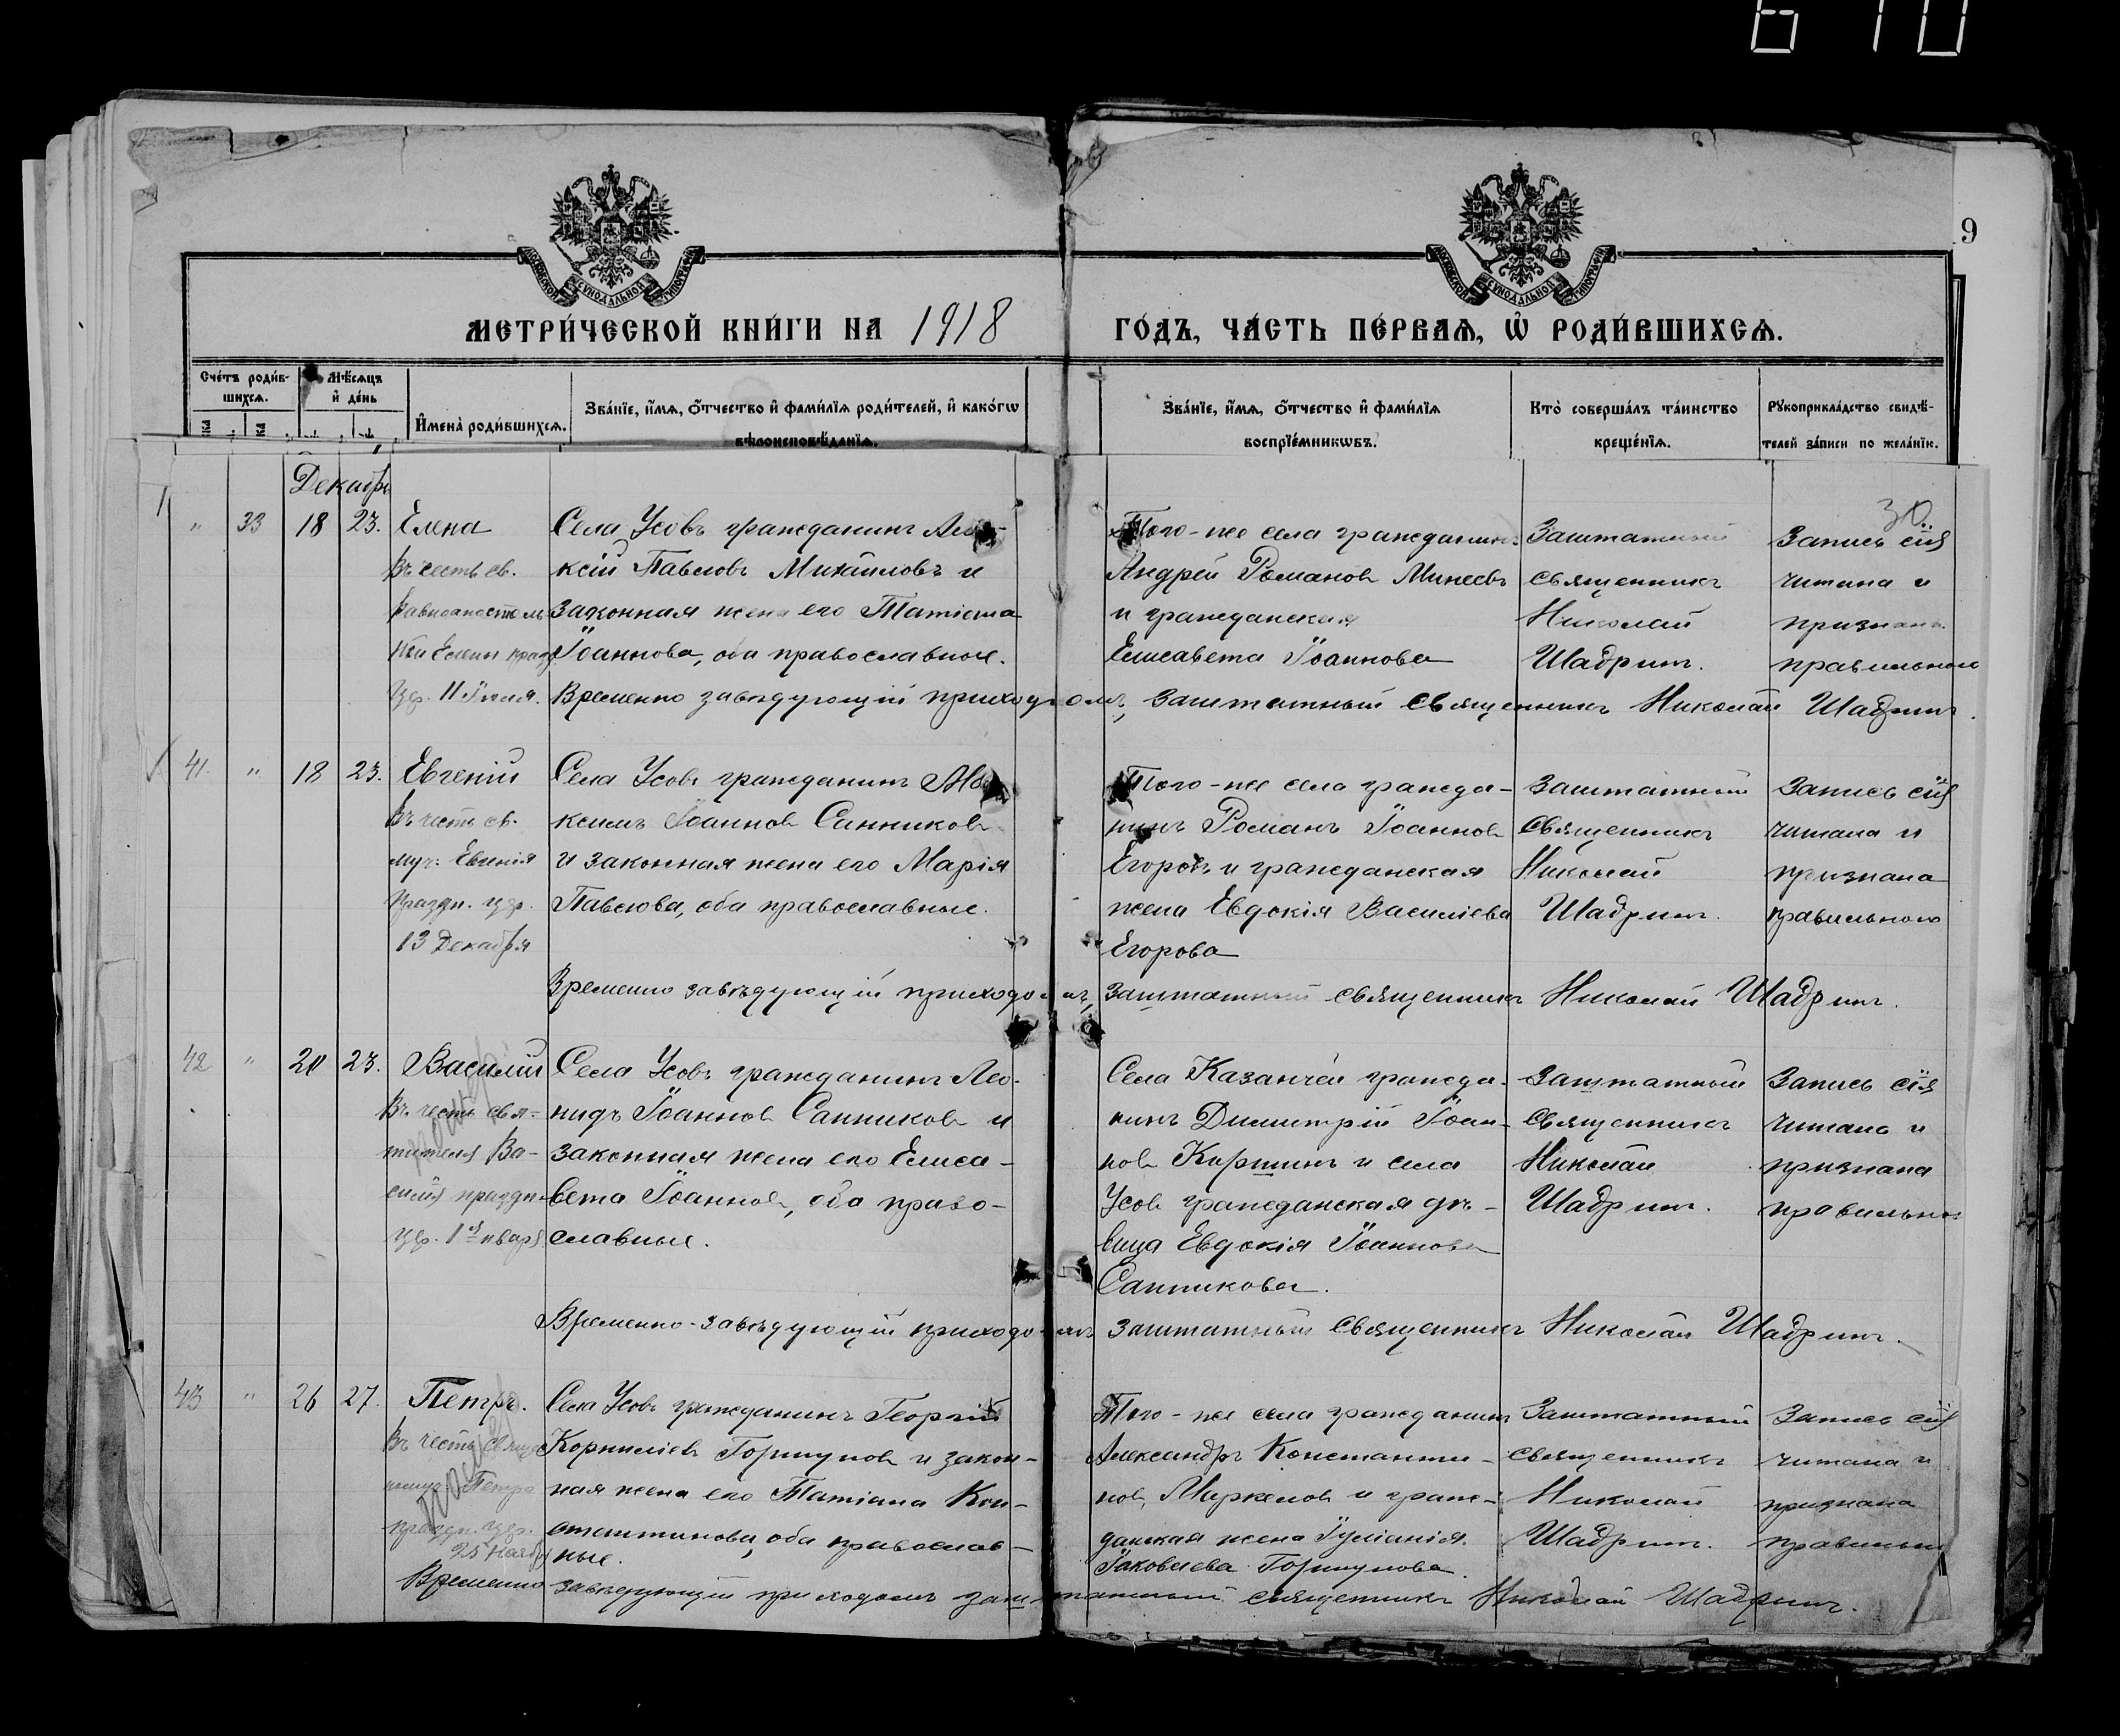 610
9
МОСКОВСКОЙ СѴНОДАЛЬНОЙ ТИПОГРАФІИ
МОСКОВСКОЙ СѴНОДАЛЬНОЙ ТИПОГРАФІИ
МЕТРИ́ЧЕСКОЙ КНИ́ГИ НА 1918 ГО́ДЪ, ЧА́СТЬ ПЕ́РВАѦ, Ѡ҆ РОДИ́ВШИХСѦ.
Сче́тъ роди́в-
шихсѧ.
Мѣ́сѧцъ
и҆ де́нь
И҆мена̀ роди́вшихсѧ.
Зва́нїе, и҆́мѧ, ѻ҆́тчество и҆ фами́лїѧ роди́телей, и҆ како́гѡ
вѣ́роисповѣ́данїѧ.
Зва́нїе, и҆́мѧ, ѻ҆́тчество и҆ фами́лїѧ
воспрїе́мникѡвъ.
Кто̀ соверша́лъ та́инство
креще́нїѧ.
Рꙋкоприкла́дство свидѣ́-
телей за́писи по жела́нїю.
Декабрь
30
" 33 18 23. Елена
Въ честь св.
равноапостоль
ной Елены празд.
цер. 11 Іюля.
Села Усовъ гражданинъ Але-
ксій Павловъ Михайловъ и
законная жена его Татіана
Іоаннова, оба православные.
Того-же села гражданинъ
Андрей Романовъ Минеевъ
и гражданская
Елисавета Іоаннова
Заштатный
священникъ
Николай
Шадринъ.
Запись сія
читана и
признана
правильною
Временно завѣдующій приходомъ, заштатный священникъ Николай Шадринъ.
41. " 18 23. Евгеній
Въ честь св.
муч. Евгенія
праздн. цер.
13 Декабря
Села Усовъ гражданинъ Ма-
ксимъ Іоанновъ Санниковъ
и законная жена его Марія
Павлова, оба православные.
Того-же села гражда-
нинъ Романъ Іоанновъ
Егоровъ и гражданская
жена Евдокія Василіева
Егорова
заштатный
священникъ
Николай
Шадринъ.
Запись сія
читана и
признана
правильною
Временно завѣдующій приходомъ, заштатный священникъ Николай Шадринъ.
42 " 20 23. Василій
Въ честь свя-
тителя Ва-
силія праздн.
цер. 1 января
Села Усовъ гражданинъ Лео-
нидъ Іоанновъ Санниковъ и
законная жена его Елиса-
вета Іоаннов, оба право-
славные.
Села Казанчей гражда-
нинъ Димитрій Іоан-
новъ Коршинъ и села
Усовъ гражданская дѣ-
вица Евдокія Іоаннова
Санникова.
Заштатный
священникъ
Николай
Шадринъ.
Запись сія
читана и
признана
правильною
Временно-завѣдующій приходомъ заштатный священникъ Николай Шадринъ.
43 " 26 27. Петръ.
Въ честь священ
номуч. Петра
праздн. цер.
25 Ноября
Села Усовъ гражданинъ Георгій
Корниліевъ Горшуновъ и закон-
ная жена его Татіана Кон-
стантинова, оба православ-
ные.
Того-же села гражданинъ
Александръ Константи-
новъ Меркеловъ и граж-
данская жена Іуліанія
Іаковлева Горшунова.
Заштатный
священникъ
Николай
Шадринъ.
Запись сія
читана и
признана
правильною
Временно завѣдующій приходомъ заштатный священникъ Николай Шадринъ.